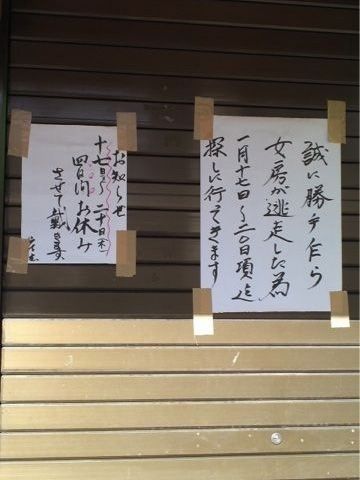 誠に勝手乍ら
女房が逃走した為
一月十七日〜二〇日頃迄
探しに行ってきます
お知らせ
十七日〜二十日(木)
四日間お休み
させて戴きます